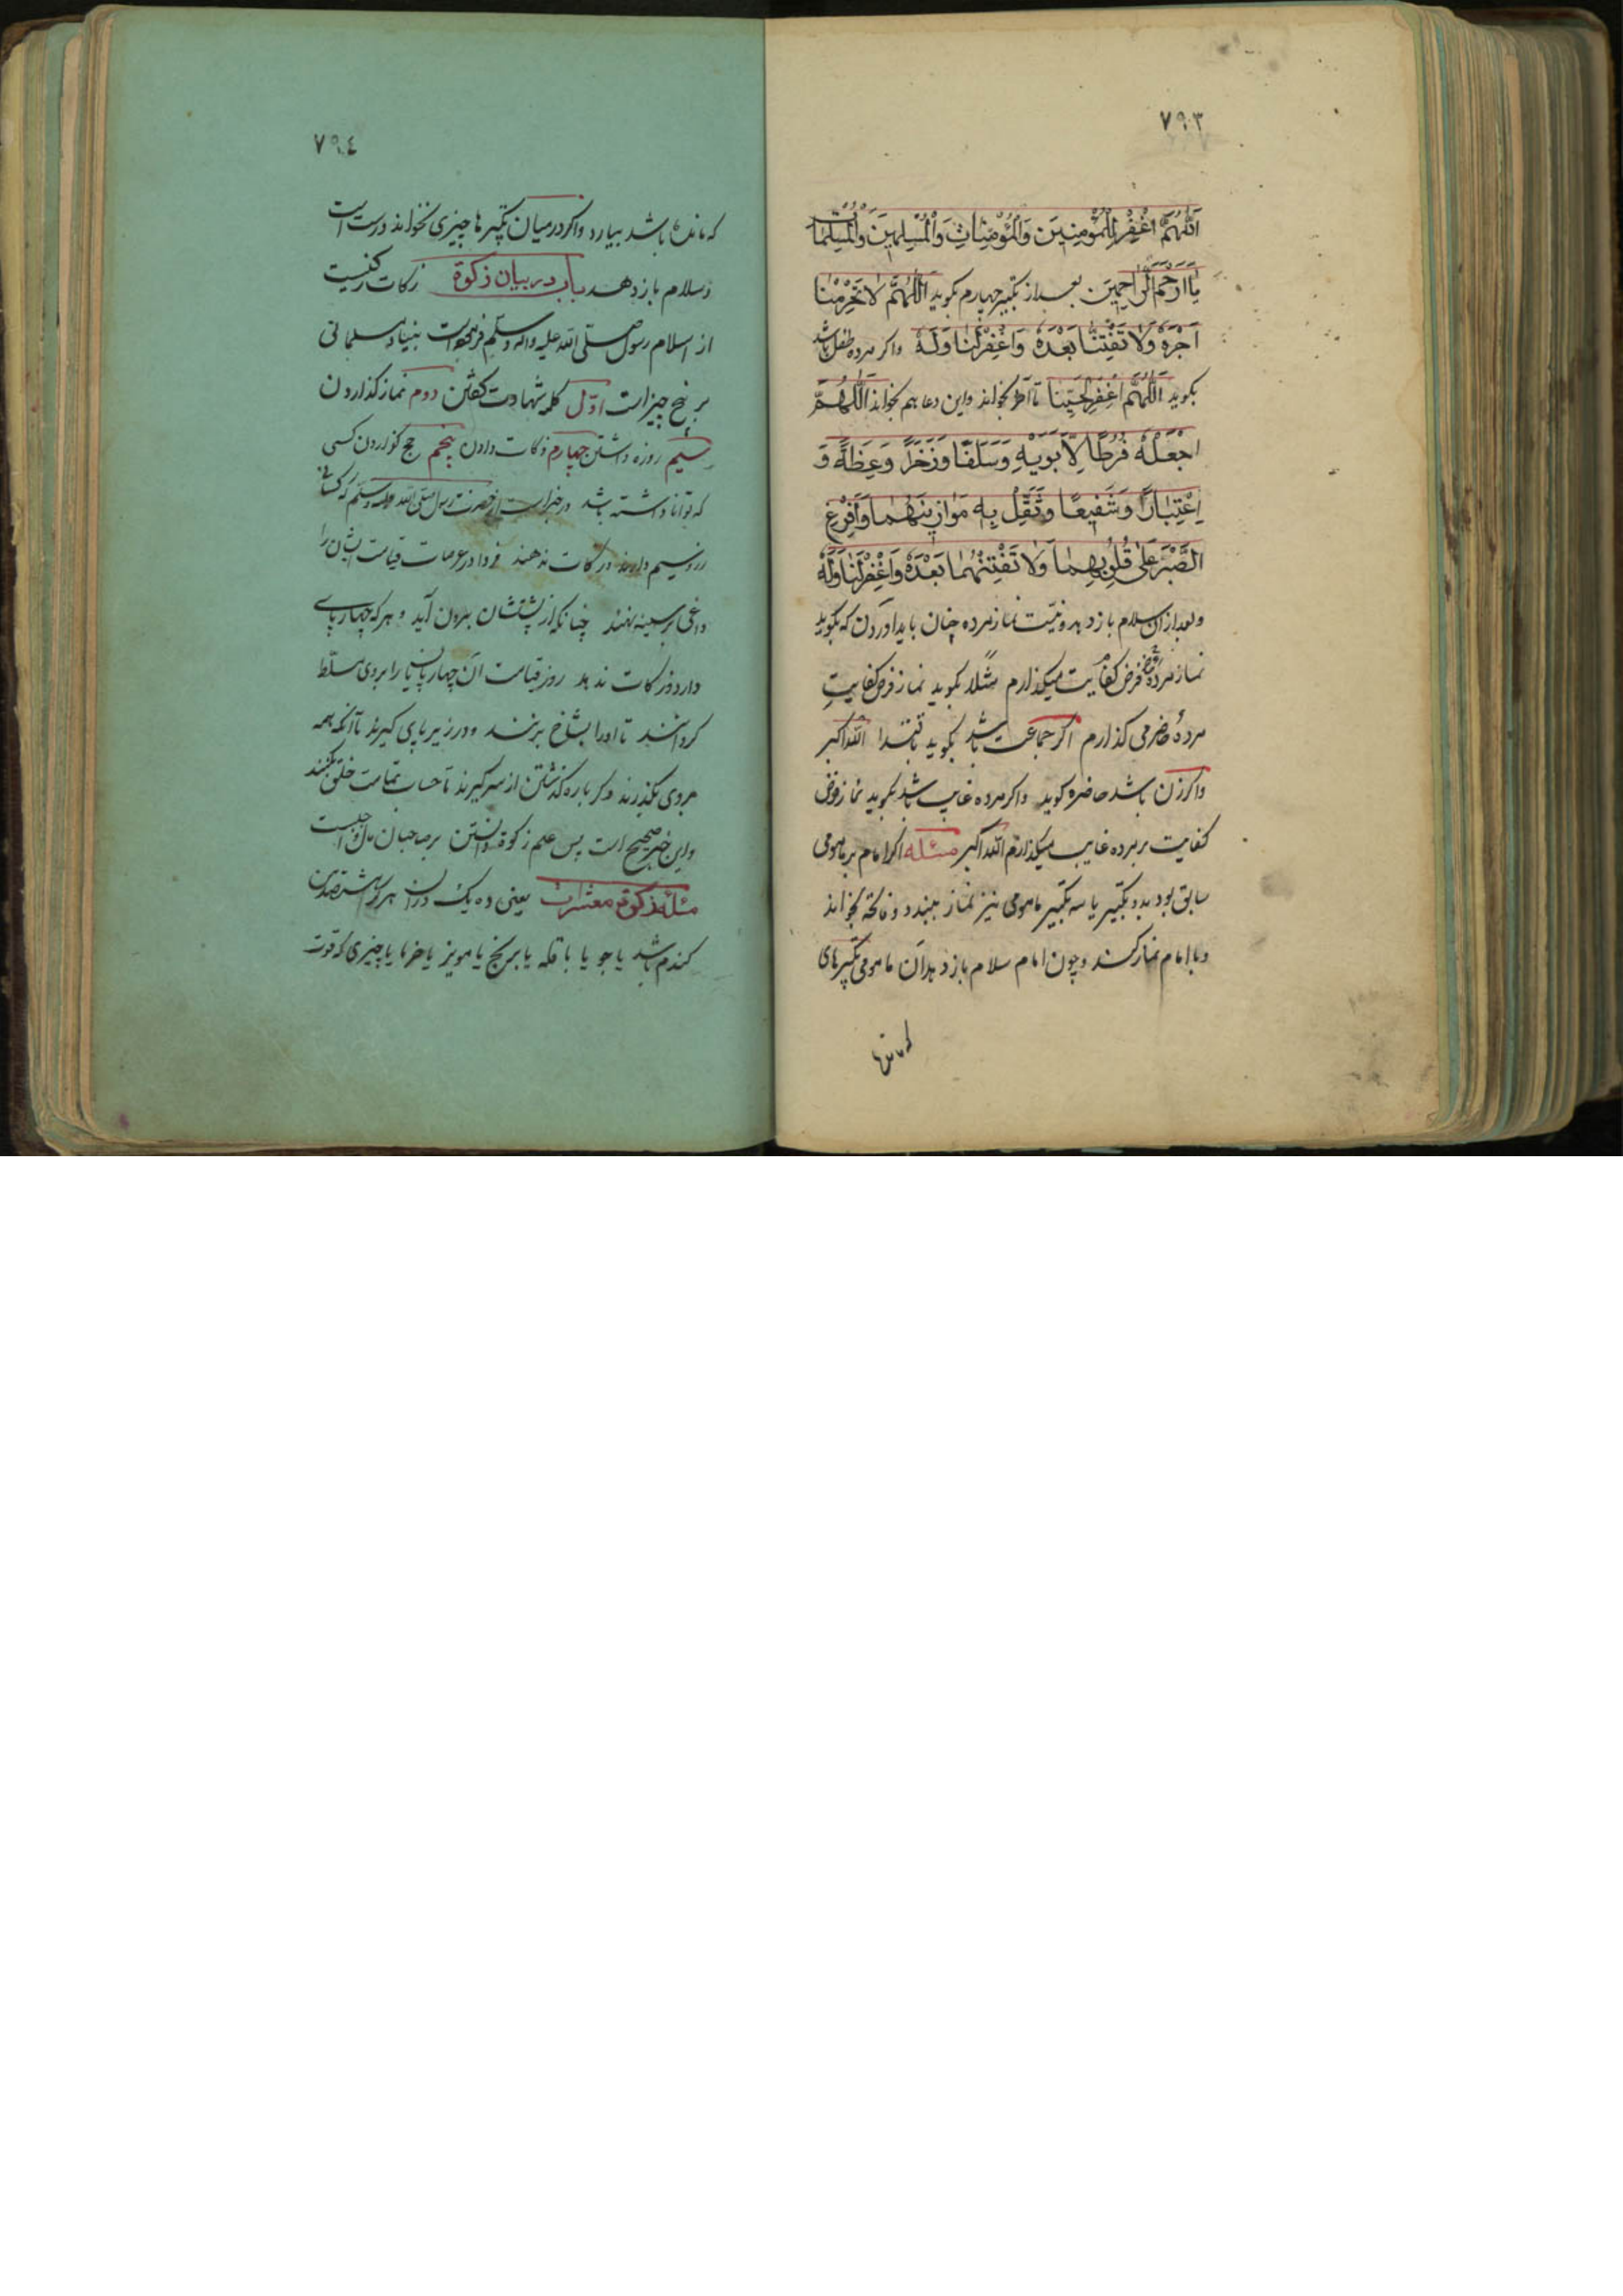 ٧٩٣
اَللّٰهُمَّ اغْفِرْ لِلْمُؤْمِنِينَ وَالْمُؤْمِنَاتِ وَالْمُسْلِمِينَ وَالْمُسْلِمَاتِ
يٰا اَرْحَمَ الرّٰاحِمِينَ بعد از تکبیر چهارم بکوید اَللّٰهُمَّ لاٰ تَحْرِمْنٰا
اَجْرَهُ وَلاٰ تَفْتِنّٰا بَعْدَهُ وَاغْفِرْلَنٰا وَلَهُ واکر مرده طفل باشد
بکوید اَللّٰهُمَّ اغْفِرْ لِحَيِّنٰا تا آخر بخواند واین دعا هم بخواند اَللّٰهُمَّ
اجْعَلْهُ فَرَطًا لِاَبَوَيْهِ وَسَلَفًا وَذُخْرًا وَعِظَةً وَ
اِعْتِبَارًا وَشَفِيعًا وَثَقِّلْ بِهِ مَوٰازِينَهُمٰا وَاَفْرِغِ
الصَّبْرَ عَلٰى قُلُوبِهِمٰا وَلاٰ تَفْتِنْهُمٰا بَعْدَهُ وَاغْفِرْلَنٰا وَلَهُ
وبعد ازان سلام باز دهد ونیت نماز مرده چنان باید آوردن که بکوید
نماز مرده فرض کفایت میکذارم مثلا بکوید نماز فرض کفایت
مردهٔ حاضر می کذارم اکر جماعت باشد بکوید باقتدا الله اکبر
واکر زن باشد حاضره کوید واکر مرده غایب باشد بکوید نماز فرض
کفایت بر مرده غایب میکذارم الله اکبر مسئله اکر امام بر مامومی
سابق بود بدو تکبیر یا سه تکبیر مامومی نیز نماز ببندد وفاتحه بخواند
وبا امام نماز کند وچون امام سلام باز دهد آن مامومی تکبیرهای
که مانده
٧٩٤
که مانده باشد بیارد واکر در میان تکبیرها چیزی نخواند درست است
وسلام باز دهد باب در بیان زکوة زکات رکنیست
از اسلام رسول صلّی الله علیه واله وسلّم فرموده است بنیاد مسلمانی
بر پنج چیز است اوّل کلمه شهادت کفتن دوم نماز کذاردن
سیم روزه داشتن چهارم زکات دادن پنجم حج کزاردن کسی
که توانا داشته باشد در خبر است از حضرت رسول صلی الله علیه وسلم که کسانی
زر وسیم دارند وزکات ندهند فردا در عرصات قیامت ایشان را
داغی بر سینه نهند چنانکه از پشتشان بیرون آید و هر که چهارپای
دارد وزکات ندهد روز قیامت آن چهارپایان را بروی مسلّط
کردانند تا اورا بشاخ برنند و در زیر پای کیرند تا آنکه همه
بروی بکذرند دکر باره کذشتن از سر کیرند تا حساب تمامت خلق بکنند
واین خبر صحیح است پس علم زکوة دانستن بر صاحبان مال واجبست
مسئله زکوة معشرات یعنی ده یک دران هر کرا
کندم باشد یا جو یا باقله یا برنج یا مویز یا خرما یا چیزی که قوت